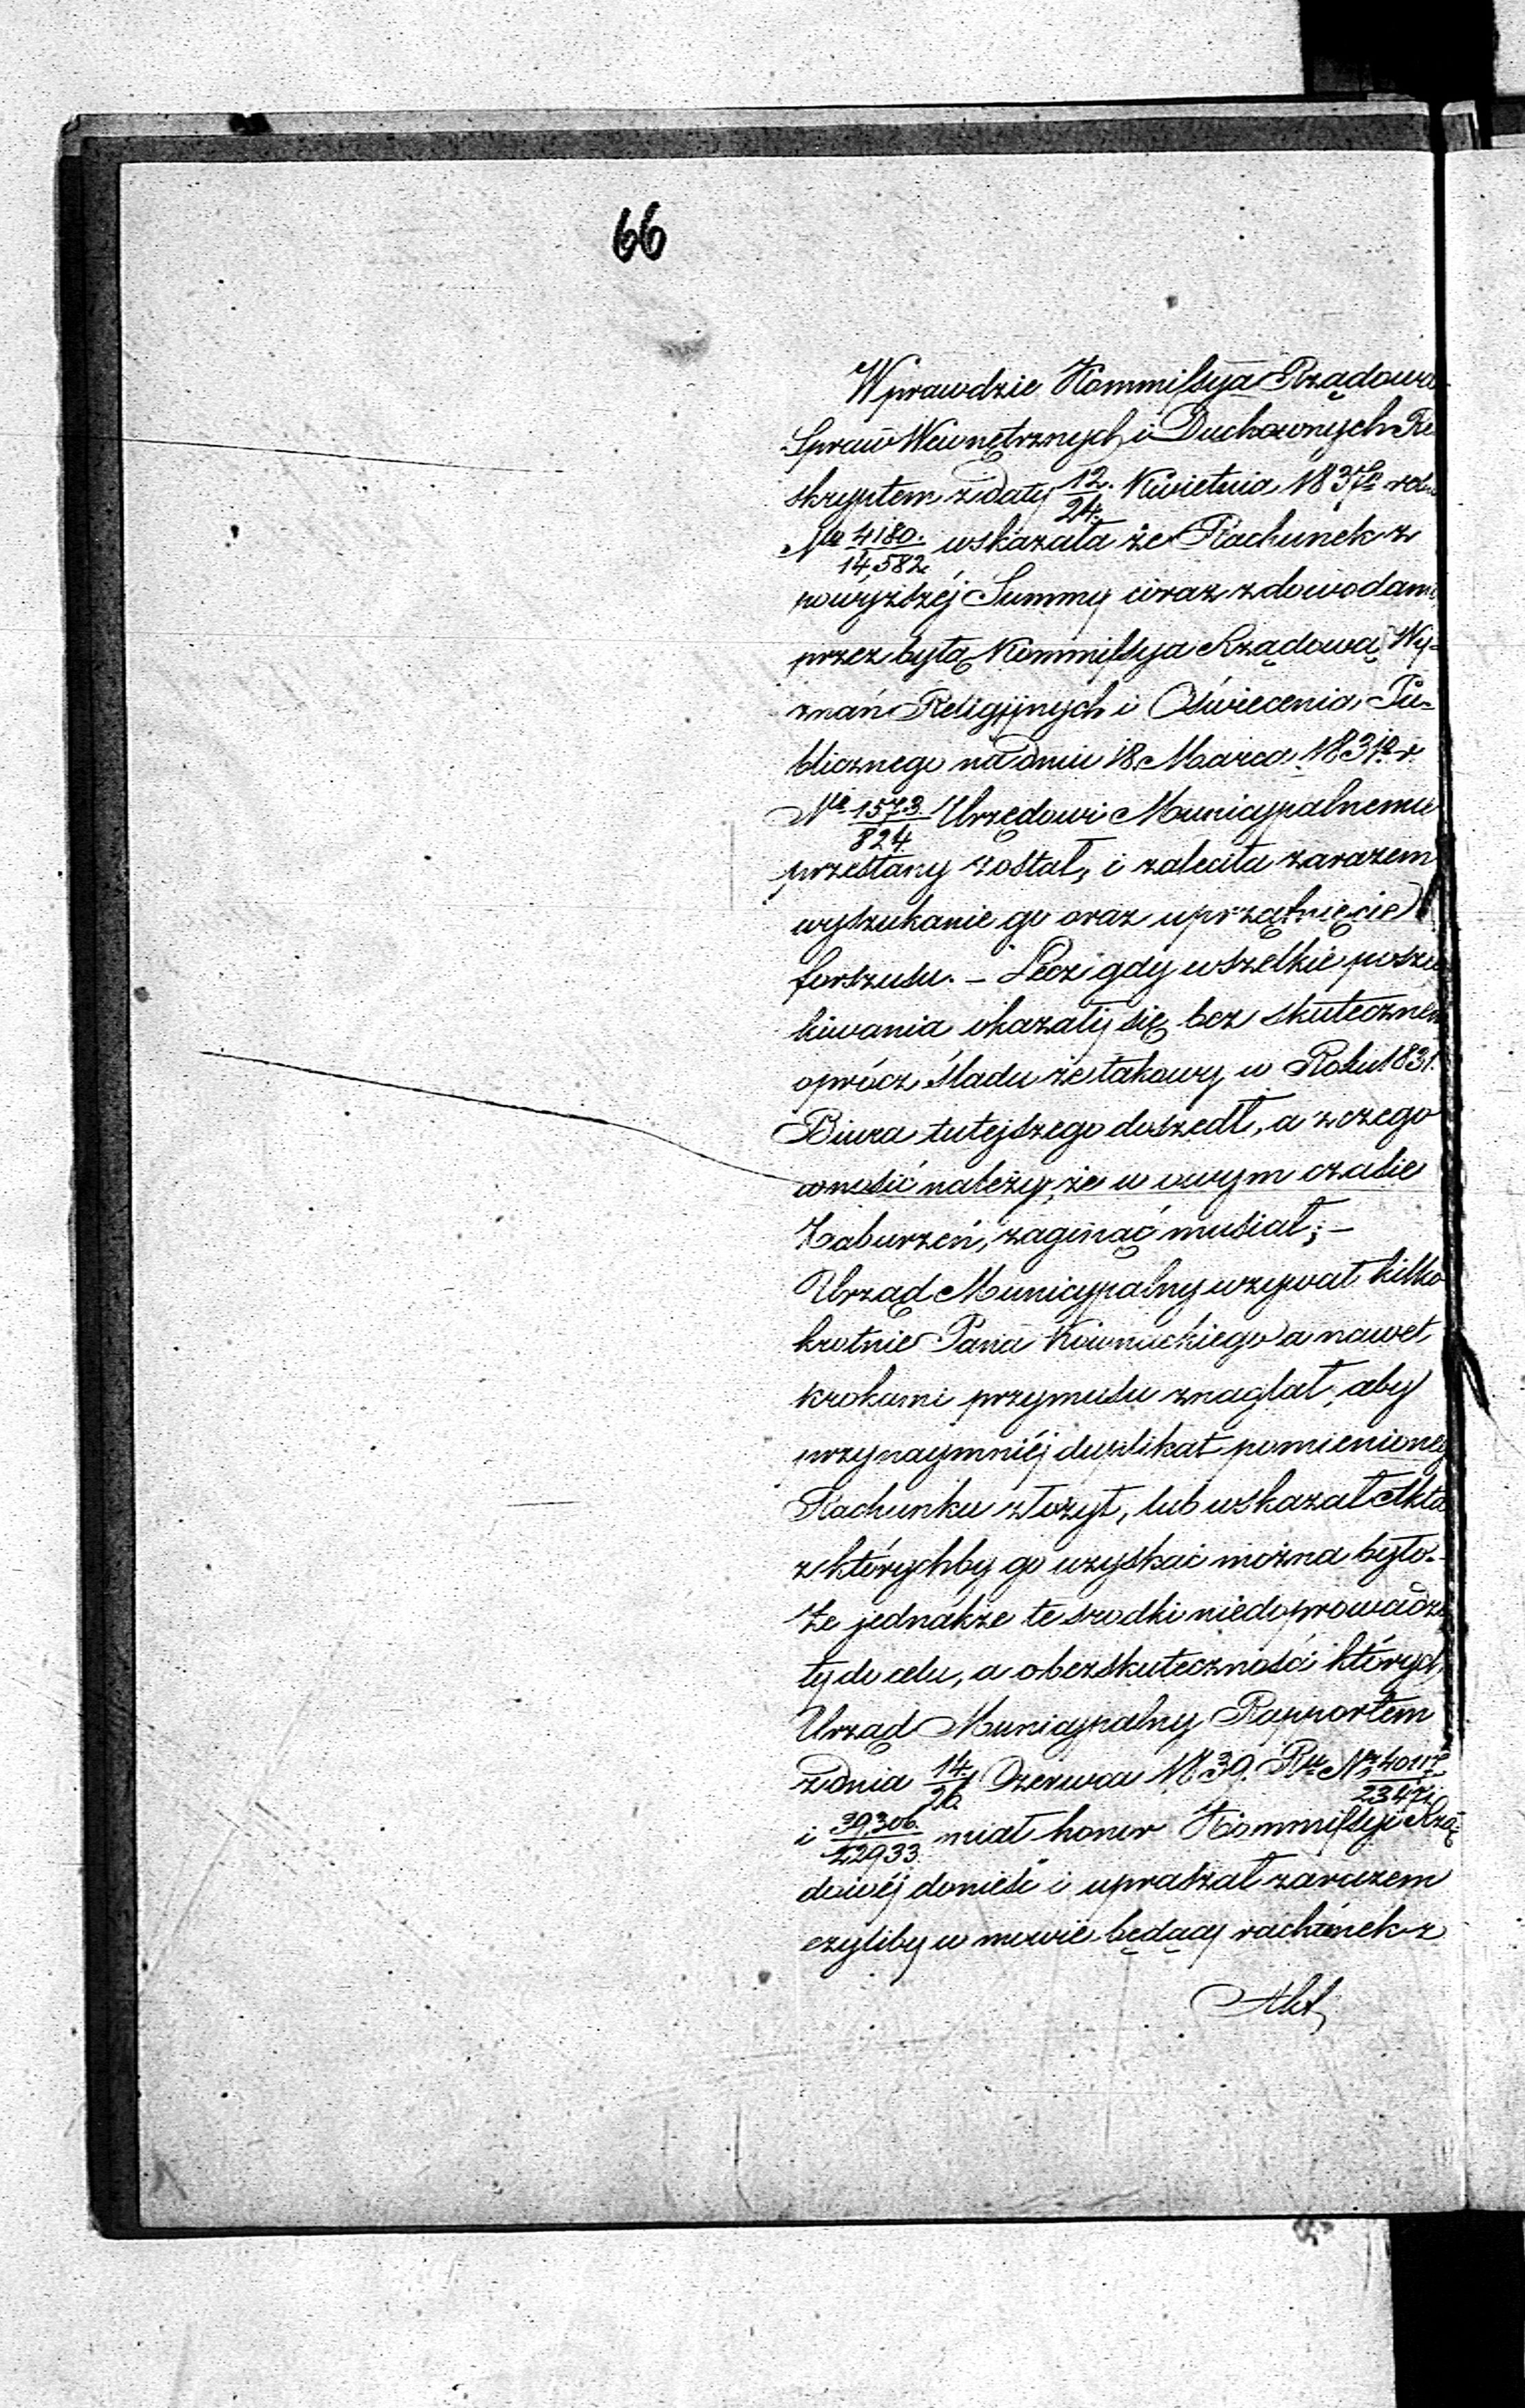 66
Wprawdzie Kommissya Rządowa
Spraw Wewnętrznych i Duchownych Re
skryptem z daty 12./24. Kwietnia 1837go roku
Nro 4180./14,582. wskazała że Rachunek z
powyższéj Summy wraz z dowodami
przez byłą Kommissya Rządową Wy-
znań Religijnych i Oświecenia Pu-
blicznego na dniu 18 Marca 1831go r.
Nro 1573./824. Urzędowi Municypalnemu
przesłany został, i zaleciła zarazem
wyszukanie go oraz uprzątnięcie
forszusu. – Lecz gdy wszelkie poszu
kiwania okazały się bez skutecznem
oprócz śladu że takowy w Roku 1831.
Biura tutejszego doszedł, a z czego
wnosić należy, że w owym czasie
Zaburzeń, zaginąć musiał; –
Urząd Municypalny wzywał kilko
krotnie Pana Kownackiego a nawet
krokami przymusu znaglał, aby
przynaymniéj duplikat pomienioneg
Rachunku złożył, lub wskazał Akta
z którychby go uzyskać można było. –
Że jednakże te srodki niedoprowadzi
ły do celu, a o bezskuteczności których
Urząd Municypalny Rapportem
z dnia 14/26 Czerwca 1839. Ru Nr 40117/23471
i 39,306./22933. miał honor Kommissyi Rzą-
dowéj donieść i upraszał zarazem
czyliby w mowie będący rachunek z
Akt